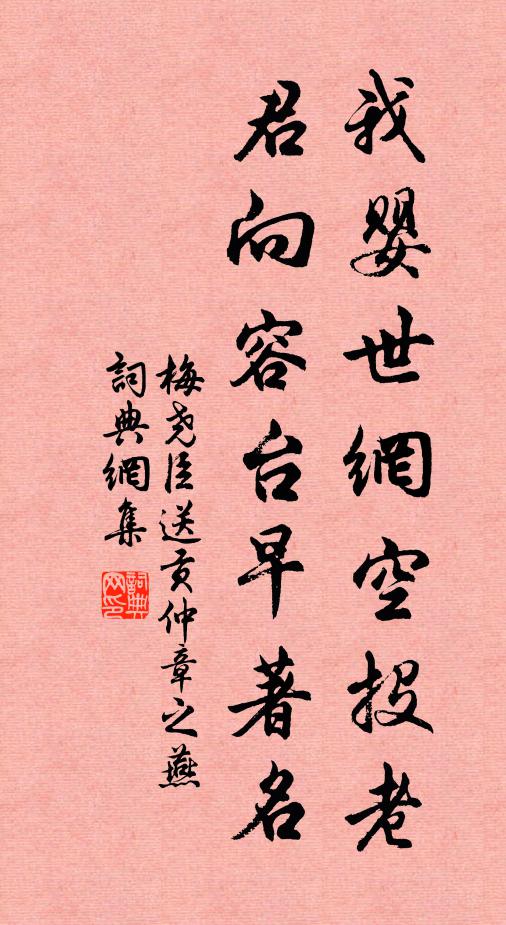 我嬰世網空投老
君向容台早著名
梅堯臣送貢仲章之燕
詞典網集
詞典
网印